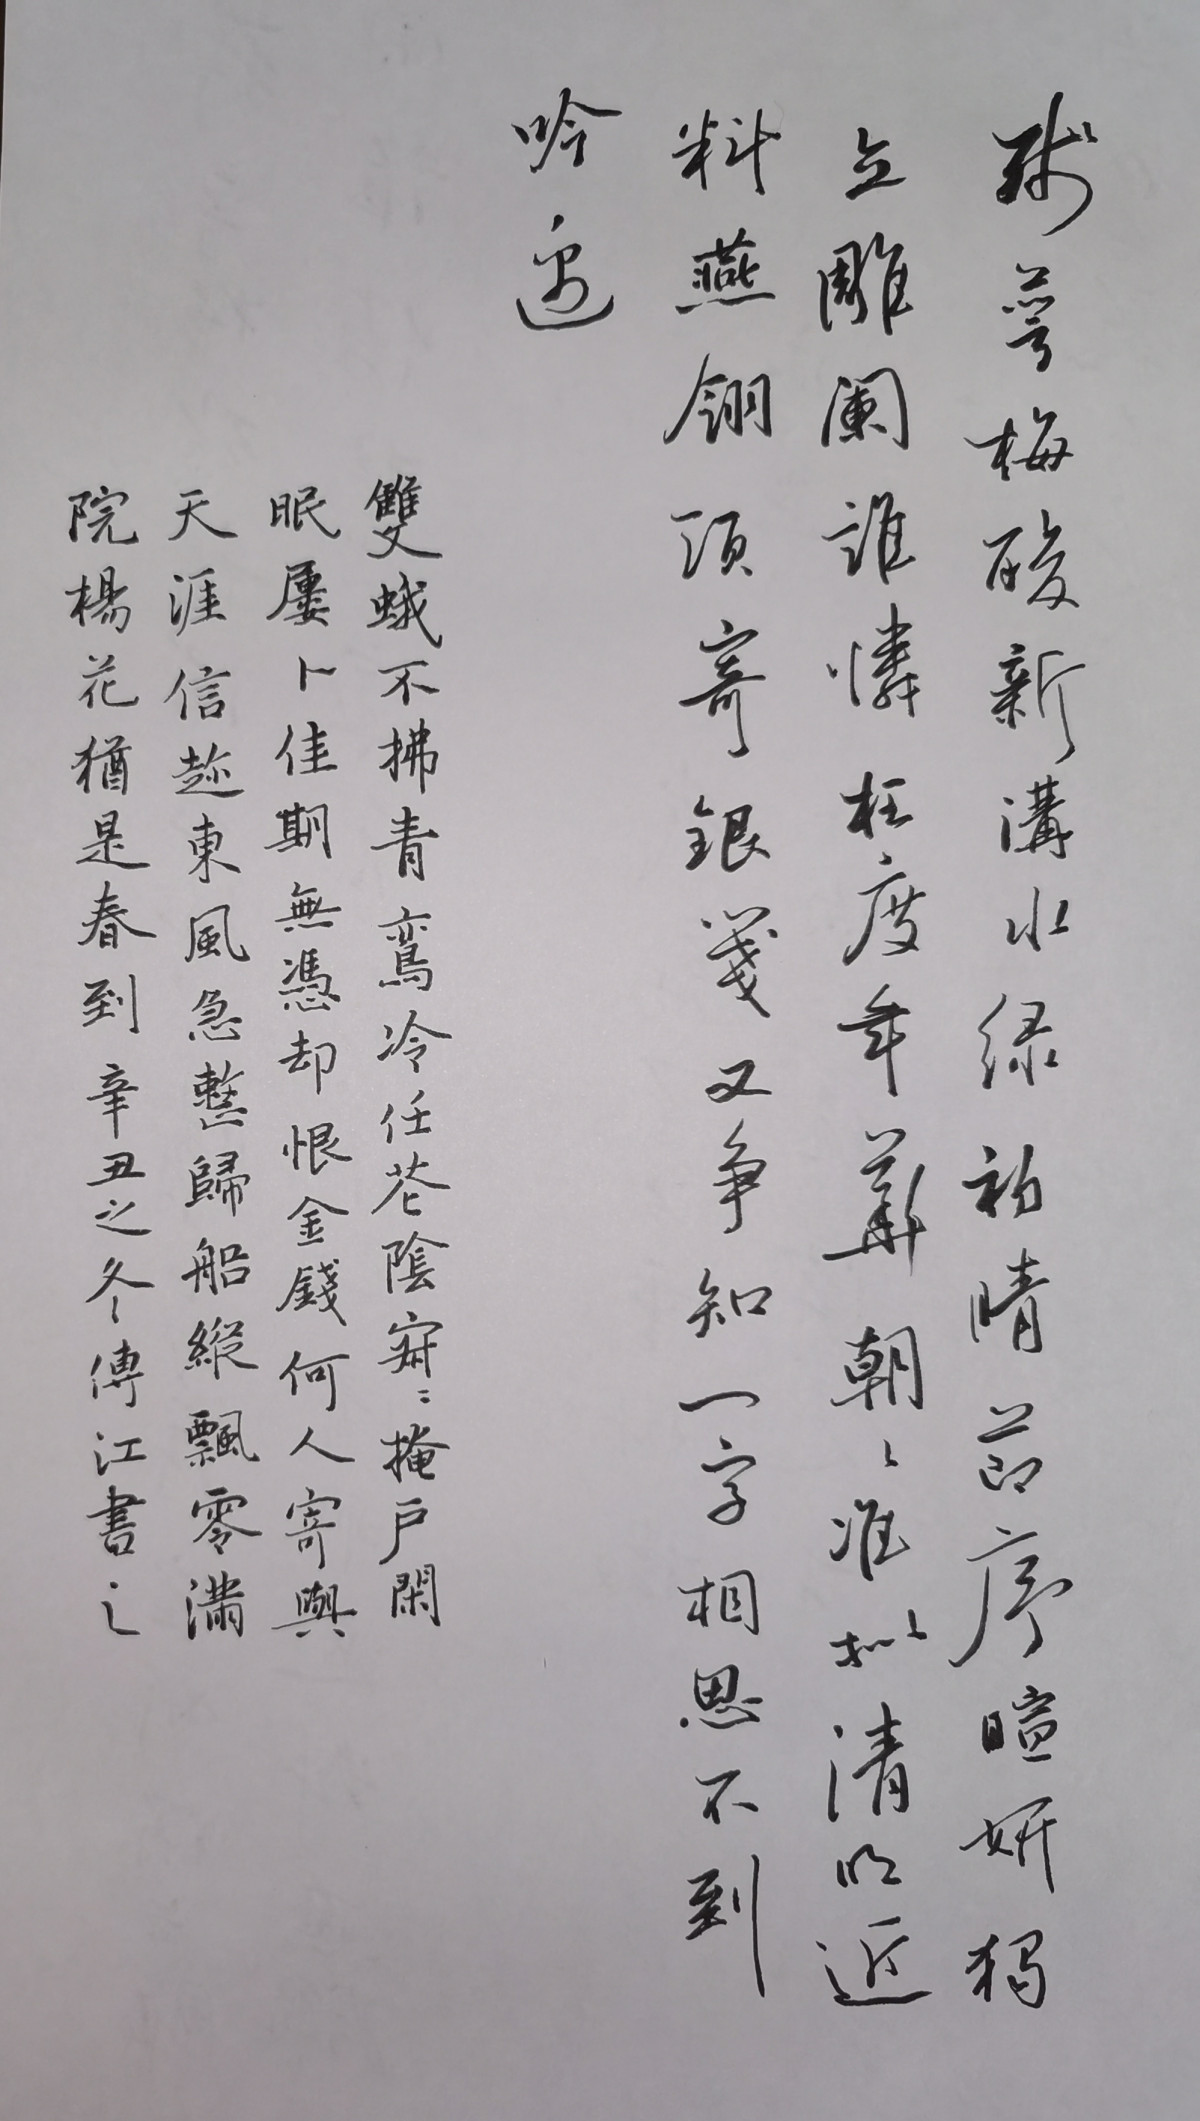 残萼梅酸新溝水绿初晴節序暄妍獨
立雕阑誰憐枉度年華朝々准拟清明近
料燕翎須寄銀箋又争知一字相思不到
吟邊
雙蛾不拂青鸞冷任花陰寂〻掩户閑
眠屢卜佳期無憑却恨金錢何人寄與
天涯信趂東風急整歸船縱飄零满
院楊花猶是春到辛丑之冬傅江書之